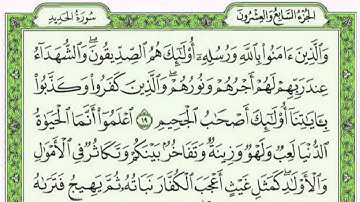 الجزء السابع والعشرون سورة الحديد
وَالَّذِينَ ءَامَنُوا۟ بِاللَّهِ وَرُسُلِهِۦٓ أُو۟لَـٰٓئِكَ هُمُ الصِّدِّيقُونَ ۖ وَالشُّهَدَآءُ
عِندَ رَبِّهِمْ لَهُمْ أَجْرُهُمْ وَنُورُهُمْ ۖ وَالَّذِينَ كَفَرُوا۟ وَكَذَّبُوا۟
بِـَٔايَـٰتِنَآ أُو۟لَـٰٓئِكَ أَصْحَـٰبُ الْجَحِيمِ ١٩ اعْلَمُوٓا۟ أَنَّمَا الْحَيَوٰةُ
الدُّنْيَا لَعِبٌ وَلَهْوٌ وَزِينَةٌ وَتَفَاخُرٌۢ بَيْنَكُمْ وَتَكَاثُرٌ فِى الْأَمْوَٰلِ
وَالْأَوْلَـٰدِ ۖ كَمَثَلِ غَيْثٍ أَعْجَبَ الْكُفَّارَ نَبَاتُهُۥ ثُمَّ يَهِيجُ فَتَرَىٰهُ